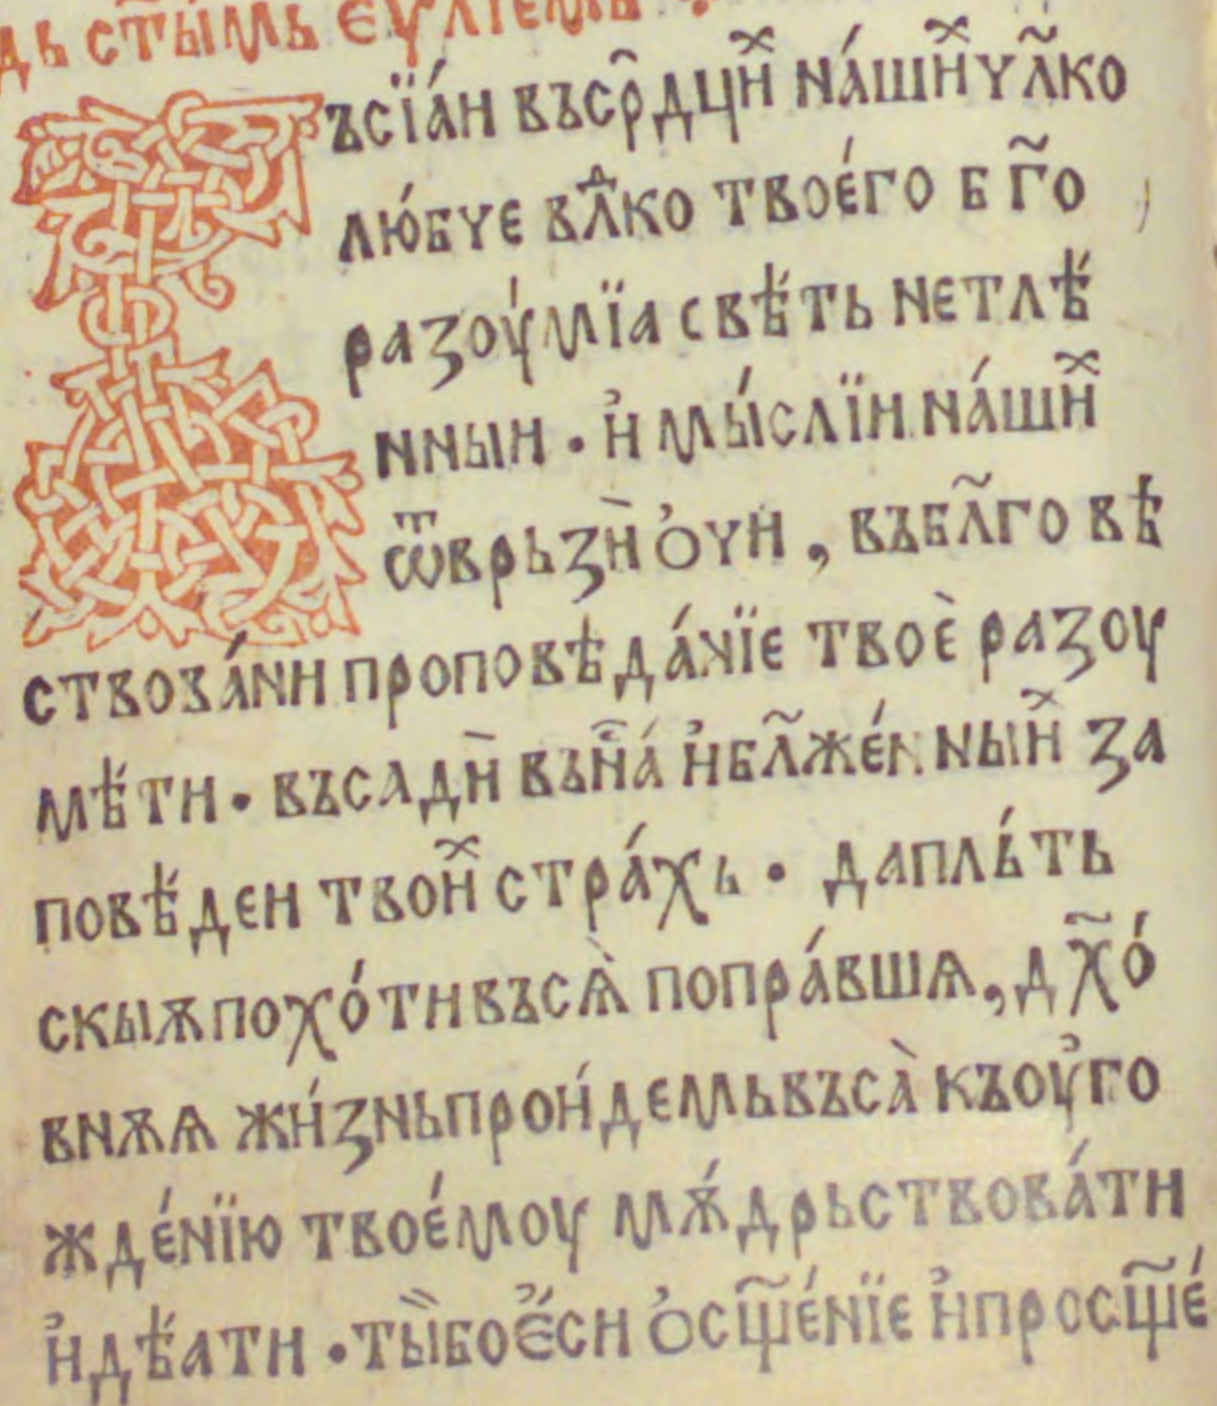 дь ст҃ы́мь єѵⷢ҇лїємь ·
Въсїа́и въср҇дциⷯ на́шиⷯ чл҃ко
лю́бче влⷣко твоє́го б г҃о
разоу́мїа свѣ́ть нетлѣ́
нныи · и҆ мы́слїи на́шиⷯ
ѿврьзѝ ѻ҆чи , въбл҃го вѣ
ствова́ни проповѣда́нїе твоѐ разоу
мѣ́ти · въсадѝ въна́ и҆бл҃же́нныиⷯ за
повѣ́деи твоиⷯ стра́хь · даплъ́ть
скыѫпохо́тивъсѧ̀ попра́вшѧ, дх҃о́
внѫѧ жи́зньпрои́демьвъса̀ къоу҆го
жде́нїю твоє́моу мѫ́дрьствова́ти
и҆дѣ́ати · ты̏боє҆́си ѻ҆сщ҃е́нїе и҆просщ҃е́